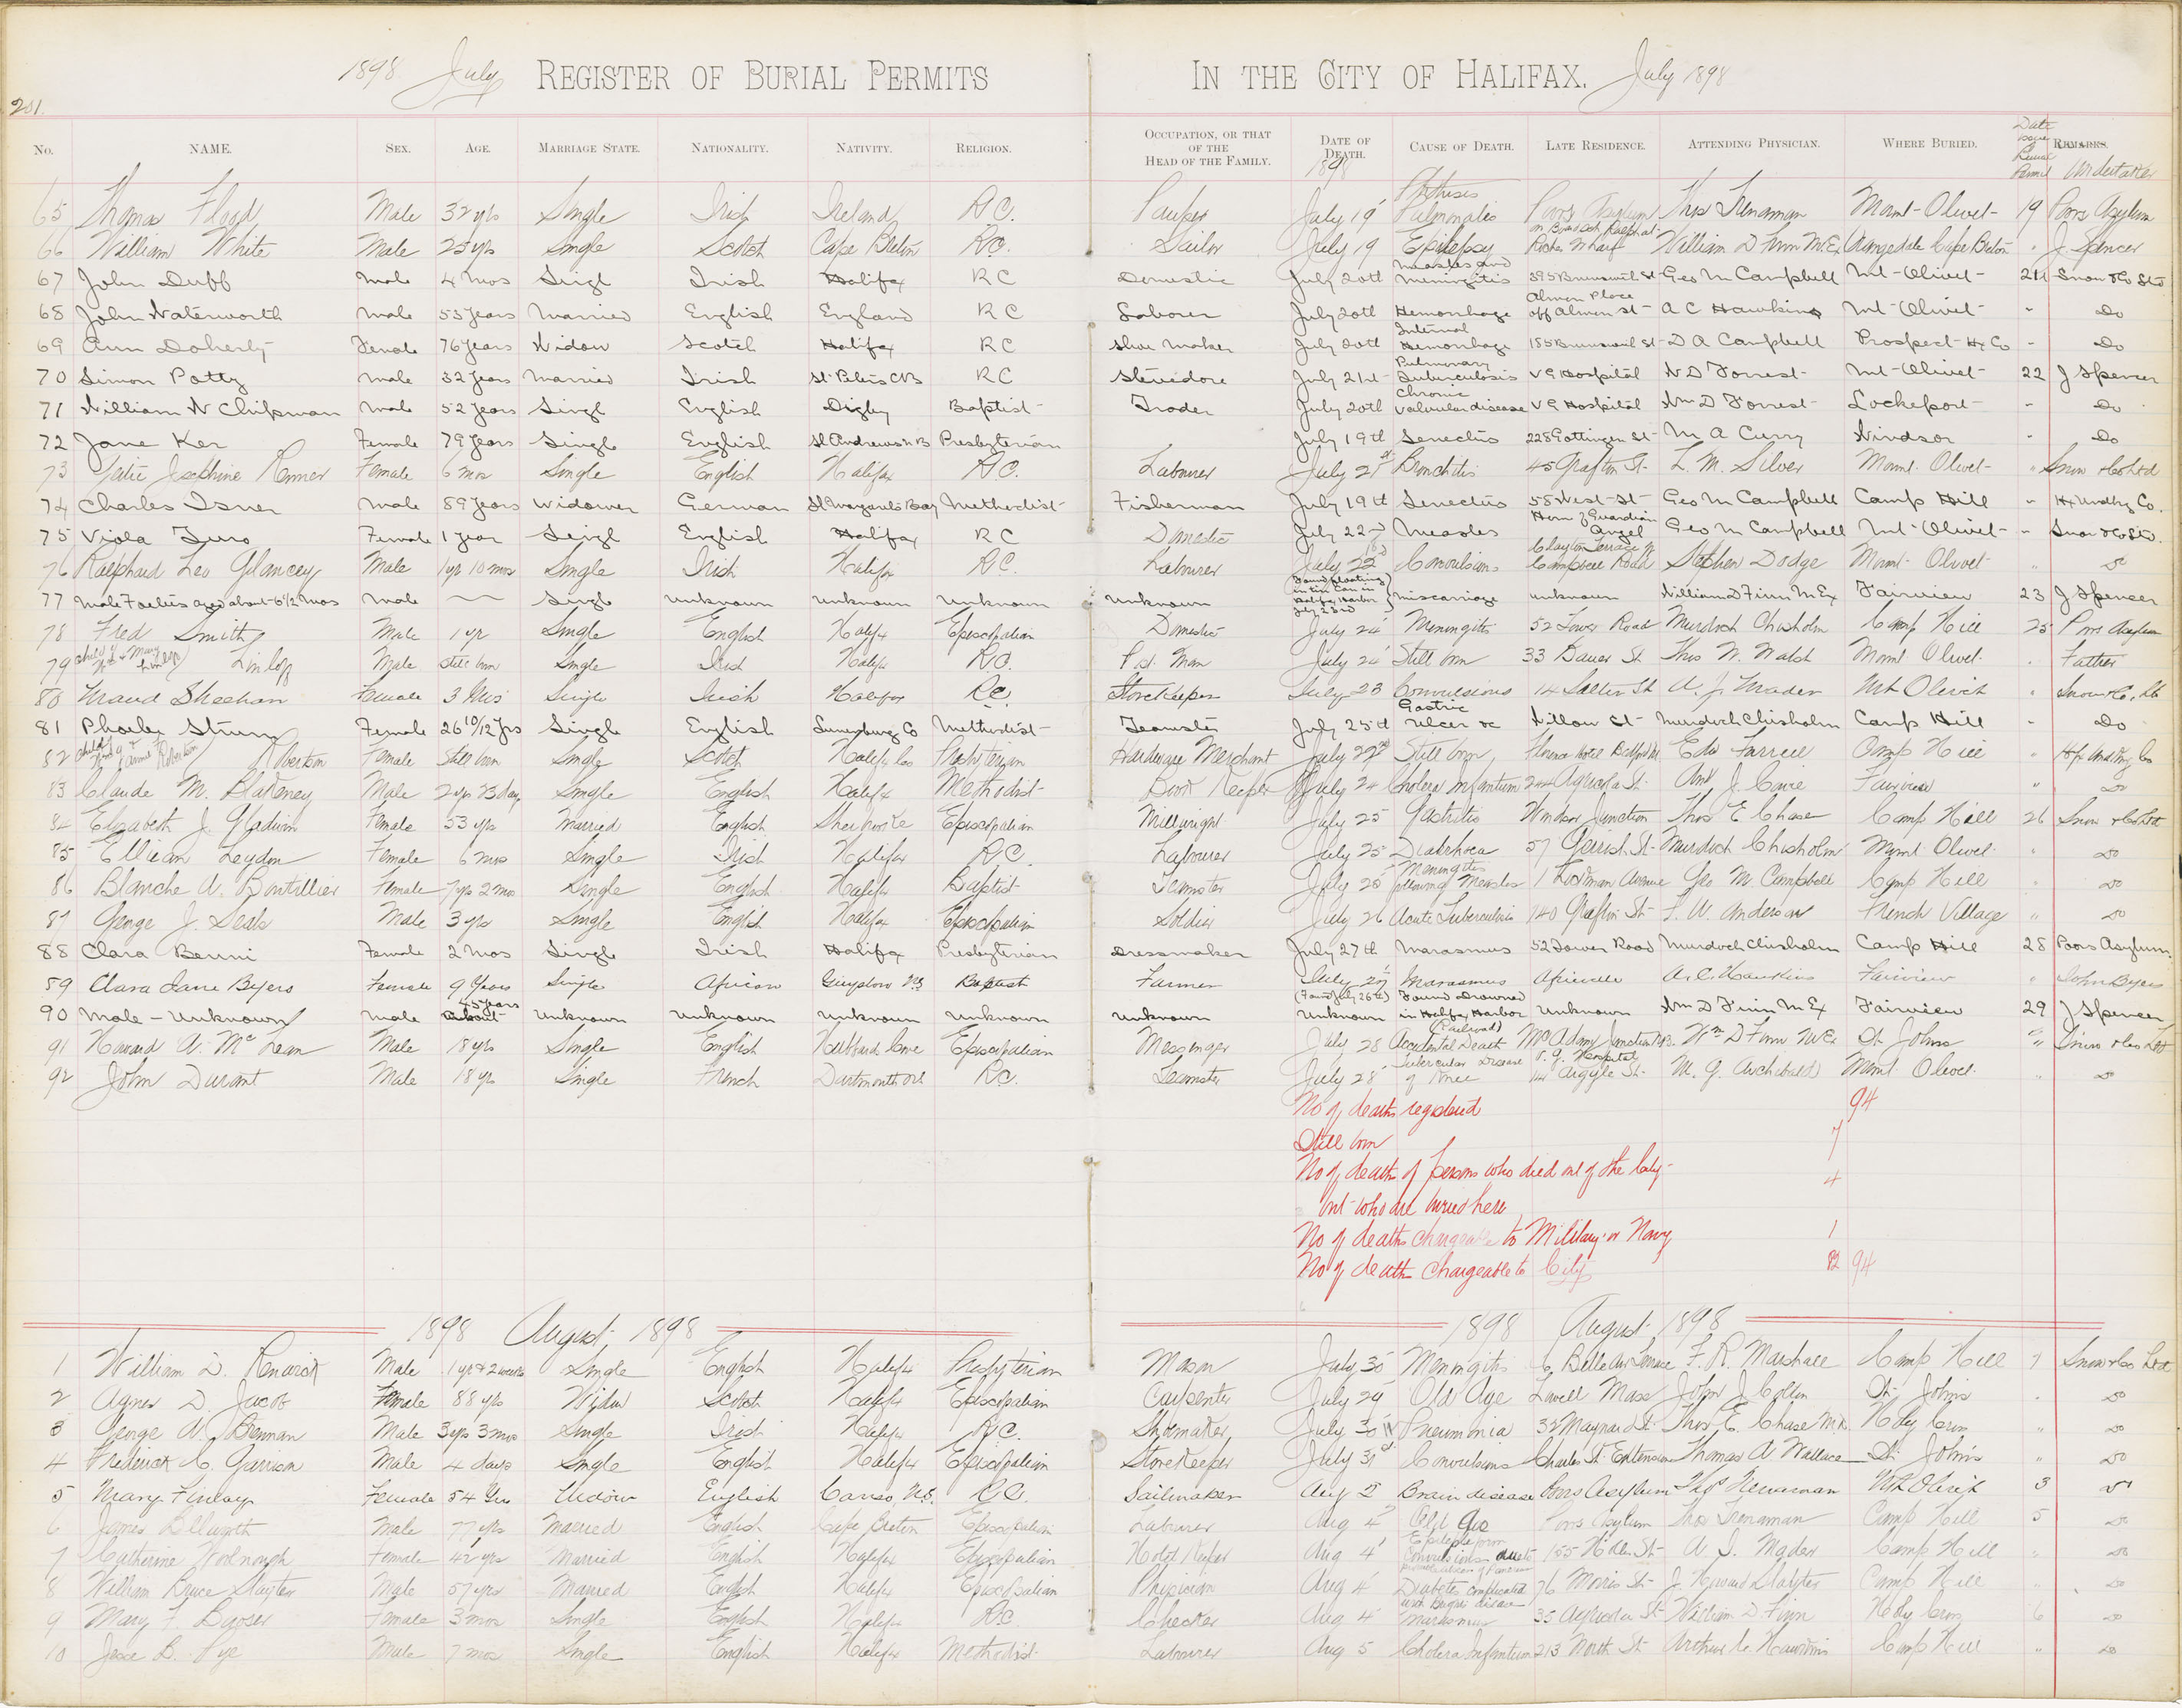 1898 July REGISTER OF BURIAL PERMITS IN THE CITY OF HALIFAX. July 1898
201.
No. NAME. SEX. AGE. MARRIAGE STATE. NATIONALITY. NATIVITY. RELIGION. OCCUPATION, OR THAT OF THE HEAD OF THE FAMILY. DATE OF DEATH. 1898 CAUSE OF DEATH. LATE RESIDENCE. ATTENDING PHYSICIAN. WHERE BURIED. Date Issue Burial Permit REMARKS. Undertaker
65 Thomas Flood Male 32 yrs Single Irish Ireland R.C. Pauper July 19 Phthisis Pulmonalis Poors Asylum Thos Trenaman Mount Olivet 19 Poors Asylum
66 William White Male 25 yrs Single Scotch Cape Breton R.C. Sailor July 19 Epilepsy on Board Sch Wharf William D Finn M.Ex Orangedale Cape Breton " J Spencer
67 John Duff Male 4 Mos Singl Irish Halifax R C Domestic July 20th Measles and Meningitis 395 Brunswick St Geo M Campbell Mt Olivet 21st Snow & Co Ltd
68 John Waterworth Male 53 Years Married English England R C Laborer July 20th Hemorrhage Almon Place off Almon St A C Hawkins Mt Olivet " Do
69 Ann Doherty Female 76 Years Widow Scotch Halifax R C Shoe Maker July 20th Internal Hemorrhage 155 Brunswick St D A Campbell Prospect Hx Co " Do
70 Simon Potty Male 32 Years Married Irish St Peters CB R C Stevedore July 21st Pulmonary Tuberculosis V G Hospital W D Forrest Mt Olivet 22 J Spencer
71 William W Chipman Male 52 Years Singl English Digby Baptist Trader July 20th Chronic Valvular disease V G Hospital Wm D Forrest Lockeport " Do
72 Jane Ker Female 79 Years Single English St Andrews N B Presbyterian July 19th Senectus 228 Gottingen St M A Curry Windsor " Do
73 Josephine Female 6 mos Single English Halifax R.C. Labourer July 21st Bronchitis 45 Grafton St L. M. Silver Mount Olivet " Snow & Co Ltd
74 Charles Isner Male 89 Years Widower German St Margarets Bay Methodist Fisherman July 19th Senectus 58 West St Geo M Campbell Camp Hill " Hx Undtkg Co.
75 Viola Female 1 Year Singl English Halifax R C Domestic July 22nd Measles Home of Guardian Angel Geo M Campbell Mt Olivet " Snow & Co Ltd.
76 Leo Glancey Male 1 yr 10 mos Single Irish Halifax R.C. Labourer July 22nd Convulsions Clayton Terrace Campbell Road Stephen Dodge Mount Olivet " Do
77 Male Foetus aged about 6 1/2 Mos Male — Singl Unknown Unknown Unknown Unknown Found floating in tin Can in Halifax Harbor July 23rd Miscarriage Unknown William D Finn M Ex Fairview 23 J Spencer
78 Fred Smith Male 1 yr Single English Halifx Episcopalian Domestic July 24 Meningitis 52 Tower Road Murdoch Chisholm Camp Hill 25 Poors Asylum
79 Child of Wm & Mary Male Still born Single Irish Halifx R.C. July 24 Still born 33 Bauer St Thos W. Walsh Mount Olivet " Father
80 Maud Sheehan Female 3 Mos Single Irish Halifax R.C. Storekeeper July 23 Convulsions 14 Salter St A. J. Mader Mt Olivet " Snow & Co, Ltd
81 Phoeby Strum Female 26 10/12 Yrs Single English Lunenburg Co Methodist Teamster July 25th Gastric Ulcer &c Willow St Murdoch Chisholm Camp Hill " Do
82 Child of & Annie Roberton Roberton Female Still born Single Scotch Halifax Presbyterian Hardware Merchant July 22nd Still born Florence Hotel Bedford Edw Farrell Camp Hill " Hfx Undtkg Co
83 Claude M. Blakeney Male 2 yrs 23 days Single English Halifx Methodist Book Keeper July 24 Cholera Infantum 244 Agricola St And J. Cowie Fairview " Do
84 Elizabeth J. Gladwin Female 53 yrs Married English Sherbrooke Episcopalian Millwright July 25 Gastritis Windsor Junction Thos E Chase Camp Hill 26 Snow & Co Ltd
85 Leydon Female 6 mos Single Irish Halifax R.C. Labourer July 25 Diarrhoea 57 Gerrish St Murdoch Chisholm Mount Olivet " Do
86 Blanche A. Boutillier Female 7 yrs 2 mos Single English Halifx Baptist Teamster July 25 Meningitis following Measles 1 Avenue Geo M. Campbell Camp Hill " Do
87 George J. Seals Male 3 yrs Single English Halifax Episcopalian Soldier July 26 Acute Tuberculosis 140 Grafton St F. W. Anderson French Village " Do
88 Clara Male 2 Mos Single Irish Halifax Presbyterian Dressmaker July 27th Marasmus 52 Tower Road Murdoch Chisholm Camp Hill 28 Poors Asylum
89 Clara Jane Byers Female 9 Years Single African Guysboro NS Baptist Farmer July 27 Marasmus Africville A. C. Hawkins Fairview " John Byers
90 Male - Unknown Male about 45 Years Unknown Unknown Unknown Unknown Unknown (Found July 26th) Unknown Found Drowned in Halifax Harbor Unknown Wm D Finn M Ex Fairview 29 J Spencer
91 Howard A. McLean Male 18 yrs Single English Hubbards Cove Episcopalian Messenger July 28 (Railroad) Accidental Death McAdam Junction N.B. Wm D Finn M Ex St Johns " Snow & Co Ltd
92 John Durant Male 18 yrs Single French Dartmouth NS R.C. Teamster July 28 Tubercular Disease of Knee V. G. Hospital 14 Argyle St M. G. Archibald Mount Olivet " Do
No of deaths registered 94
Still born 7
No of death of persons who died out of the City 4
but who are buried here
No of deaths chargeable to Military or Navy 1
No of death chargeable to City 82 94
1898 August 1898 1898 August 1898
1 William D. Renwick Male 1 yr & 2 weeks Single English Halifx Presbyterian Mason July 30 Meningitis 6 Belle Air Terrace F. R. Marshall Camp Hill 1 Snow & Co Ltd
2 Agnes D. Jacob Female 88 yrs Widow Scotch Halifx Episcopalian Carpenter July 29 Old Age Lowell Mass John J. Colton St. John's " Do
3 George A. Brennan Male 3 yrs 3 mos Single Irish Halifx R.C. Shoemaker July 30 Pneumonia 32 Maynard St Thos E. Chase M.D. Holy Cross " Do
4 Frederick C. Garrison Male 4 days Single English Halifx Episcopalian Storekeeper July 31st Convulsions Charles St Extension Thomas A Wallace St John's " Do
5 Mary Finlay Female 54 Yrs Widow English Canso, N.S. R.C. Sailmaker Aug 2 Brain disease Poors Asylum Thos Trenaman Mt Olivet 3 Do
6 James Male 77 yrs Married English Cape Breton Episcopalian Labourer Aug 4 Old Age Poors Asylum Thos Trenaman Camp Hill 5 Do
7 Catherine Woolnough Female 42 yrs Married English Halifax Episcopalian Hotel Keeper Aug 4 Epileptiform Convulsions due to 155 Hollis St A J. Mader Camp Hill " Do
8 William Bruce Slayter Male 57 yrs Married English Halifx Episcopalian Physician Aug 4 Diabetes complicated with Brights disease 76 Morris St J. Howard Slayter Camp Hill " Do
9 Mary F. Female 3 mos Single English Halifax R.C. Checker Aug 4 Marasmus 35 Agricola St William D. Finn Holy Cross 6 Do
10 Jesse B. Pye Male 7 mos Single English Halifx Methodist Labourer Aug 5 Cholera Infantum 213 North St Arthur C. Hawkins Camp Hill " Do